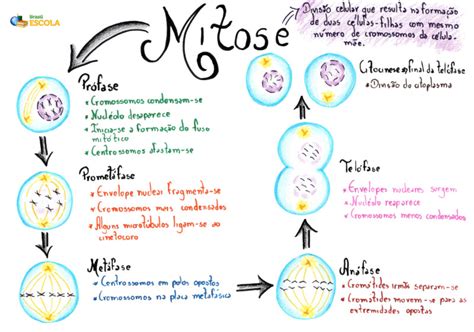 Brasil
ESCOLA
Mitose
Divisão celular que resulta na formação
de duas células-filhas com mesmo
número de cromossomos da célula-
mãe.
Prófase
Cromossomos condensam-se
Nucléolo desaparece
Inicia-se a formação do fuso
mitótico
Centrossomos afastam-se
Prometáfase
Envelope nuclear fragmenta-se
Cromossomos mais condensados
Alguns microtúbulos ligam-se ao
cinetócoro
Metáfase
Centrossomos em polos opostos
Cromossomos na placa metafásica
Anáfase
Cromátides irmãs separam-se
Cromátides movem-se para as
extremidades opostas
Telófase
Envelopes nucleares surgem
Nucléolo reaparece
Cromossomos menos condensados
Citocinese: final da telófase
Divisão do citoplasma